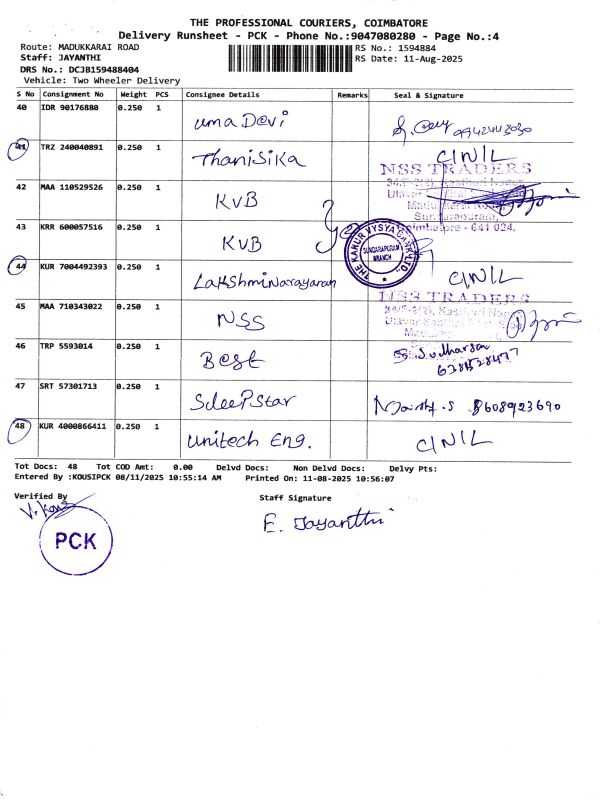 THE PROFESSIONAL COURIERS, COIMBATORE
Delivery Runsheet - PCK - Phone No.:9047080280 - Page No.:4
Route: MADUKKARAI ROAD
RS No.: 1594884
Staff: JAYANTHI
RS Date: 11-Aug-2025
DRS No.: DCJB159488404
Vehicle: Two Wheeler Delivery
S No Consignment No Weight PCS Consignee Details Remarks Seal & Signature
40 IDR 90176880 0.250 1 uma Devi 9942443030
41 TRZ 240040891 0.250 1 ThaniSika C/NIL
NSS TRADERS
42 MAA 110529526 0.250 1 KVB
Sundarapuram,
Coimbatore - 641 024.
43 KRR 600057516 0.250 1 KVB
THE KARUR VYSYA BANK LTD.
SUNDARAPURAM
BRANCH
44 KUR 7004492393 0.250 1 Lakshminarayanan C/NIL
NSS TRADERS
45 MAA 710343022 0.250 1 NSS
46 TRP 5593014 0.250 1 Best S. Sudharsan
6381528477
47 SRT 57301713 0.250 1 SleePStar 8608923690
48 KUR 4000866411 0.250 1 Unitech Eng. C/NIL
Tot Docs: 48 Tot COD Amt: 0.00 Delvd Docs: Non Delvd Docs: Delvy Pts:
Entered By :KOUSIPCK 08/11/2025 10:55:14 AM Printed On: 11-08-2025 10:56:07
Verified By
Staff Signature
E. Jayanthi
PCK